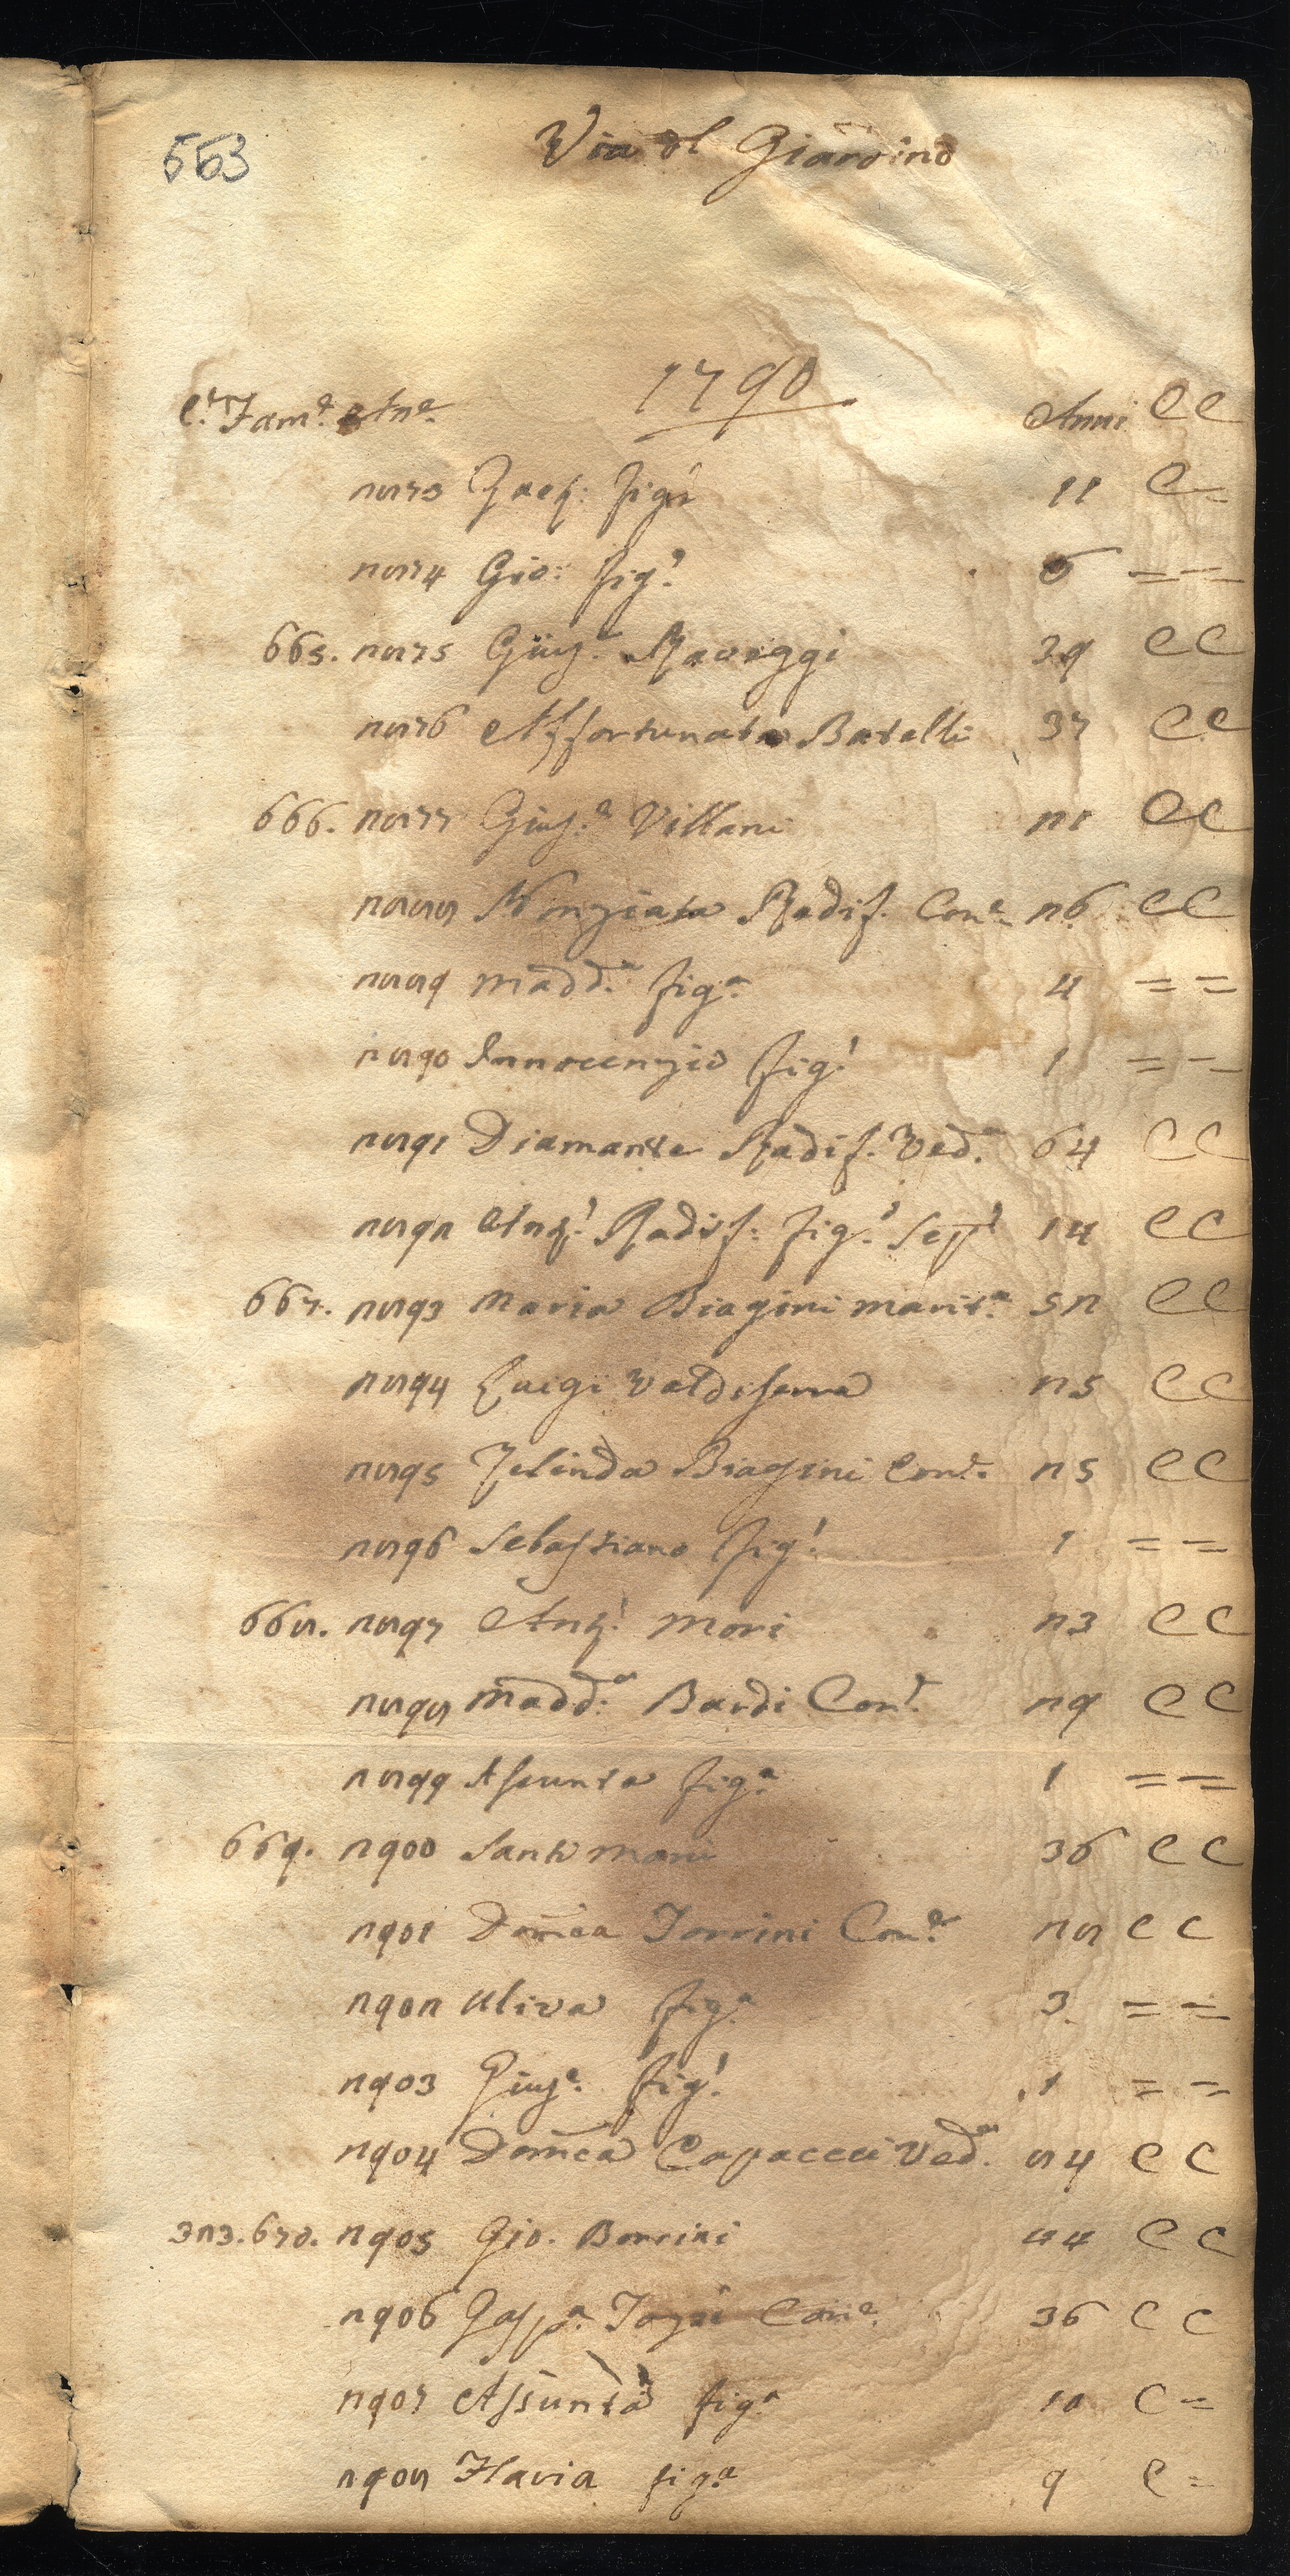 553
Via dl Giardino
1790
C.e Fam.e An.e Anni CC
2873 fig.o 11 C=
2874 Gio: fig.o 6 ==
665. 2875 Gius.e Raveggi 39 CC
2876 Affortunata Batelli 37 CC
666. 2877 Gius.e Villani 21 CC
2888 Nonziata Radif. Con.e 26 CC
2889 Madd.a fig.a 4 ==
2890 Innocenzio fig.o 1 ==
2891 Diamante Radif. Ved.a 64 CC
2892 Ant.o Radif: fig.o 14 CC
667. 2893 Maria Biagini marit.a 52 CC
2894 Luigi Valdiserra 25 CC
2895 Zelinda Biagini Con.e 25 CC
2896 Sebastiano fig.o 1 ==
668. 2897 Ant.o Mori 23 CC
2898 Madd.a Bardi Con.e 29 CC
2899 Asunta fig.a 1 ==
669. 2900 Santi 36 CC
2901 Dom̃ca Torrini Con.e 28 CC
2902 Uliva fig.a 3 ==
2903 Gius.e fig.o 1 ==
2904 Dom̃ca Capacci Ved.a 84 CC
323. 670. 2905 Gio. Borrini 44 CC
2906 Gasp.a Con.e 36 CC
2907 Assunta fig.a 10 C=
2908 Flavia fig.a 9 C=